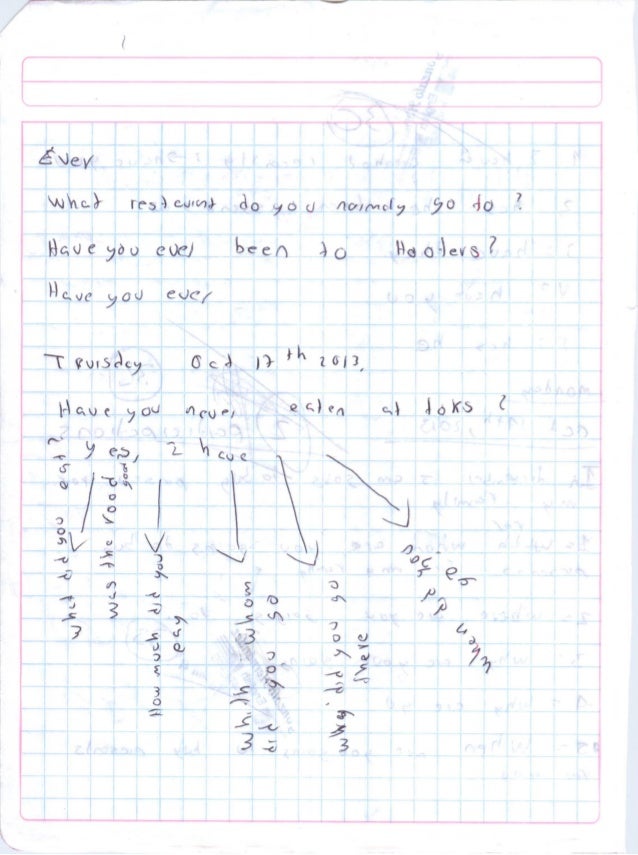 Ever
What restaurant do you normaly go to ?
Have you ever been to Hooters?
Have you ever
Thursday Oct 17th 2013.
Have you never eaten at toks ?
yes, I have
What did you eat?
was the food good
How much did you pay
whith whom did you go
why did you go there
when did you go